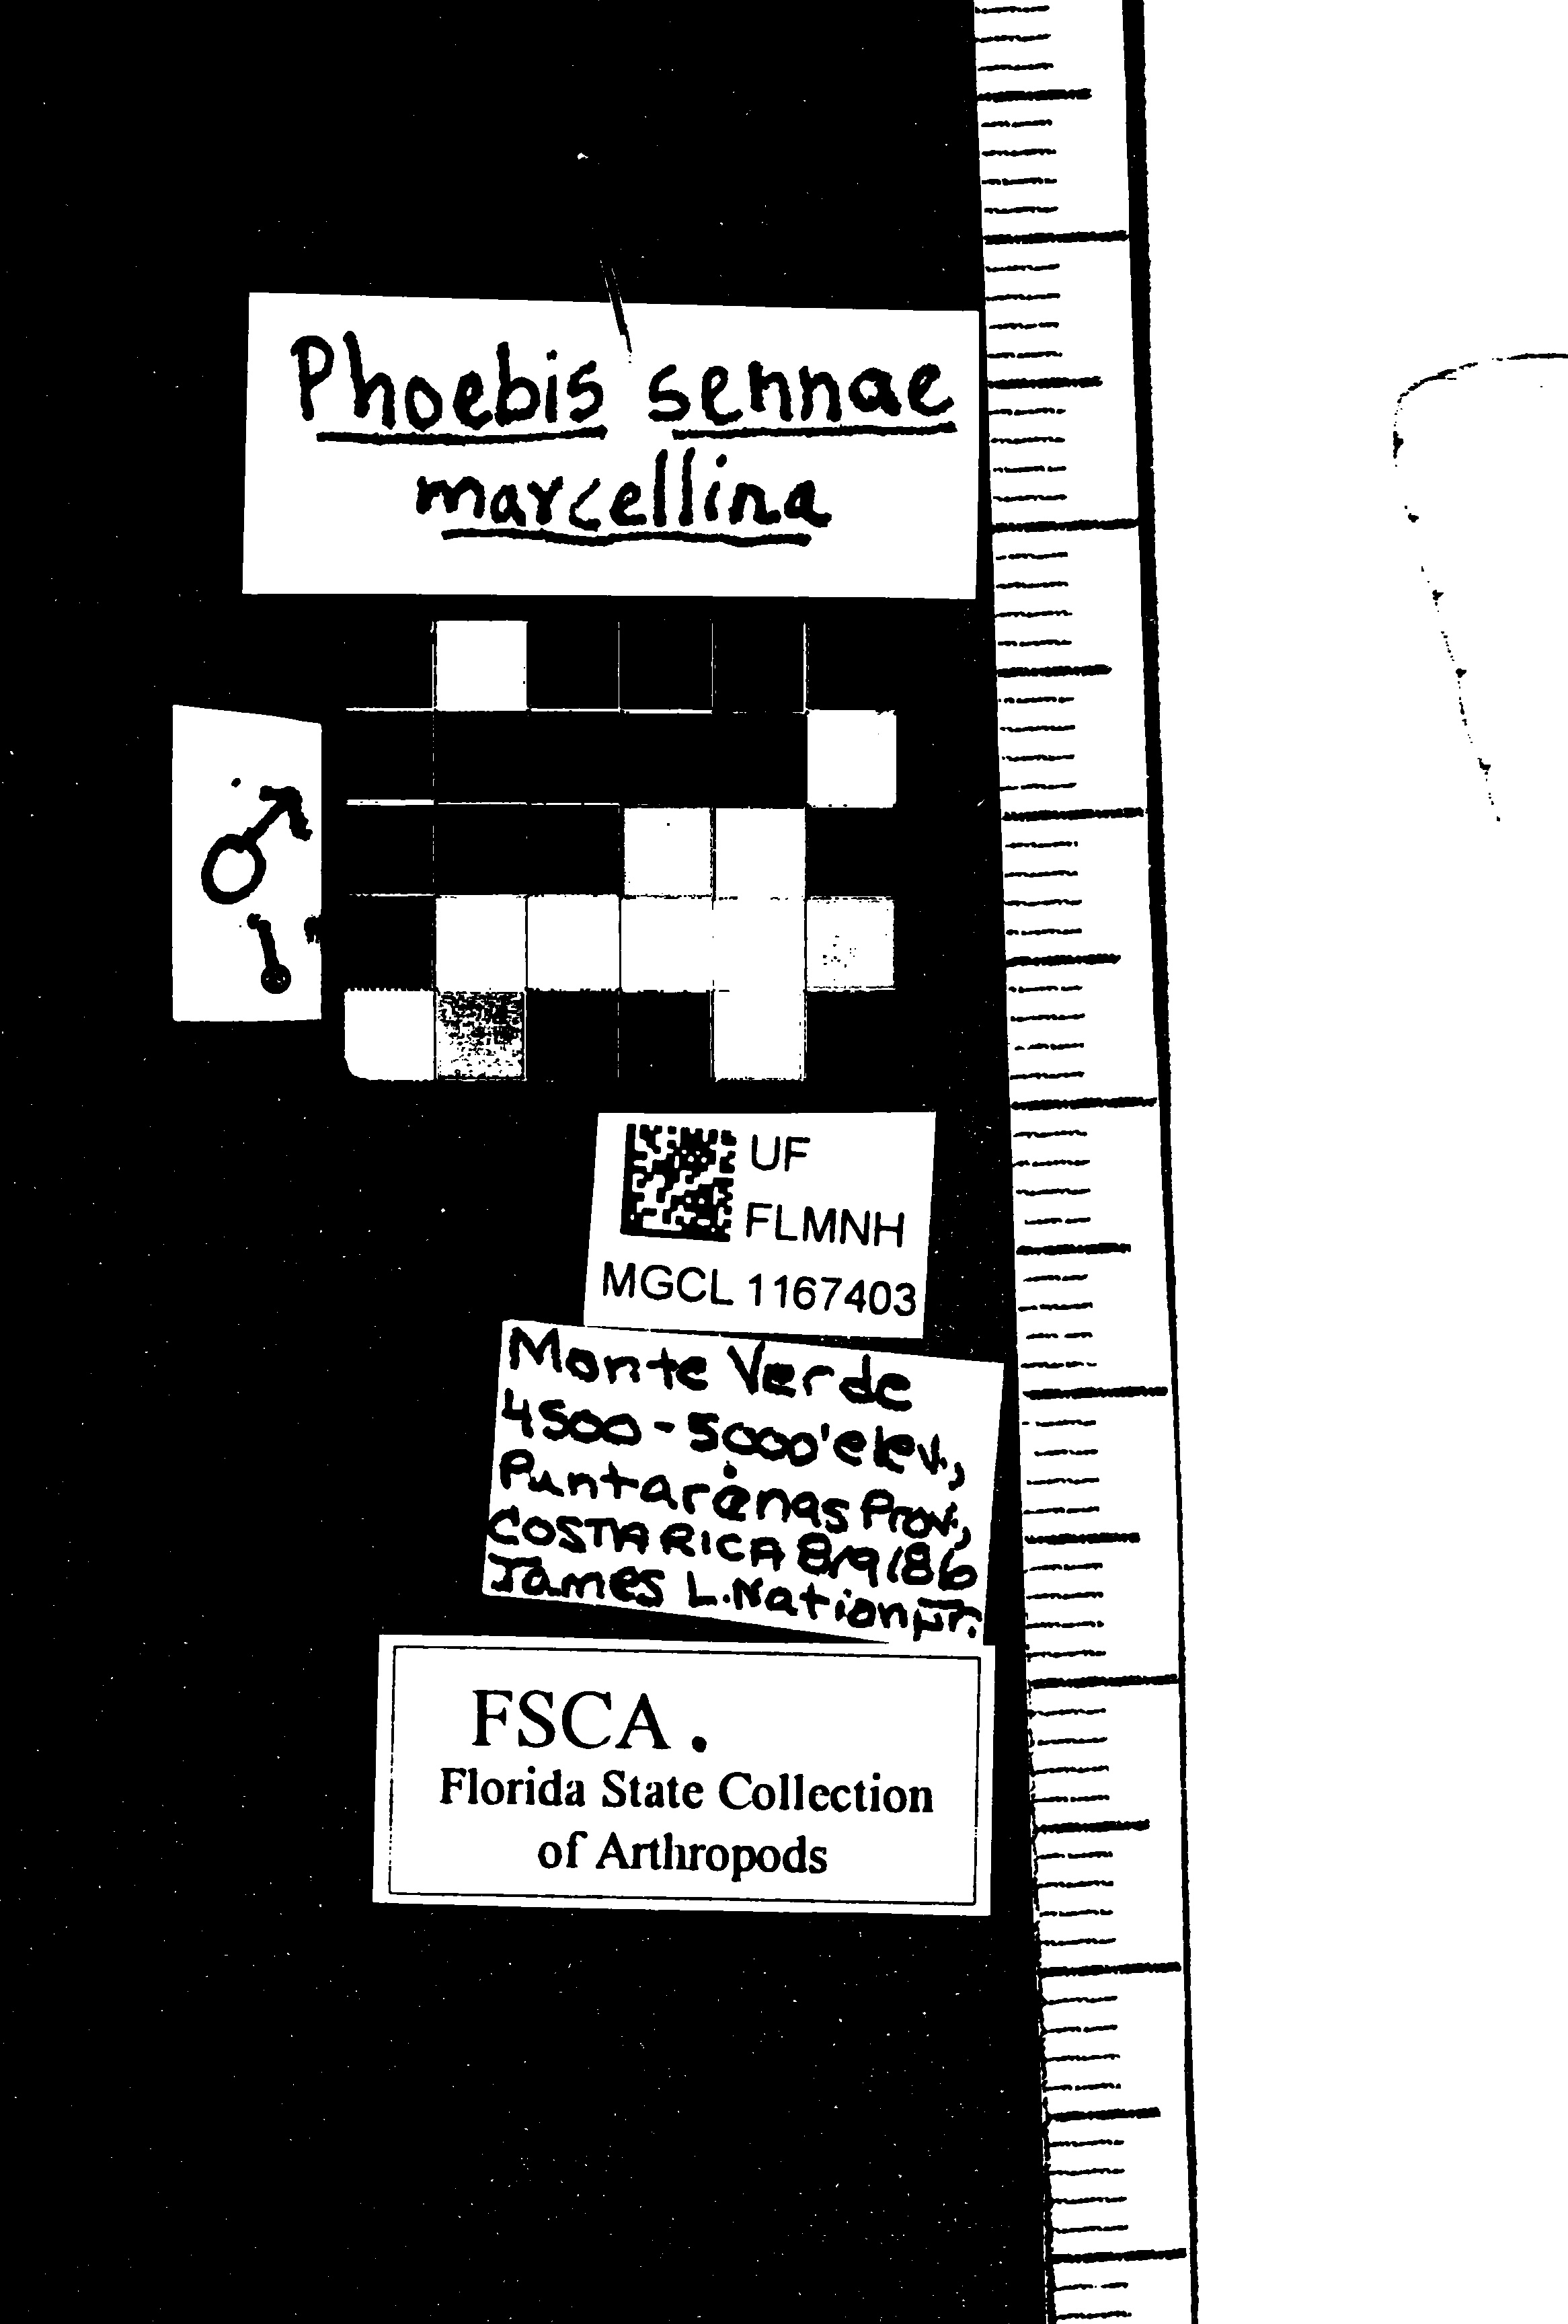 Phoebis sennae
marcellina
♂
UF
FLMNH
MGCL 1167403
Monte Verde
4500-5000' elev.,
Puntarenas Prov.,
COSTA RICA 8/9/86
James L. Nation Jr.
FSCA.
Florida State Collection
of Arthropods